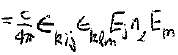 = \frac{c}{4\pi} \epsilon_{kij} \epsilon_{klm} E_j n_l E_m